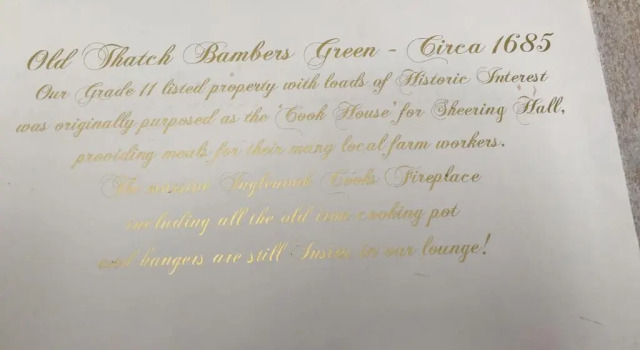 Old Thatch Bambers Green - Circa 1685
Our Grade 11 listed property with loads of Historic Interest
was originally purposed as the 'Cook House' for Sheering Hall,
providing meals for their many local farm workers.
The Inglenook Cooks Fireplace
including all the old iron cooking pot
and hangers are still Insitu in our lounge!